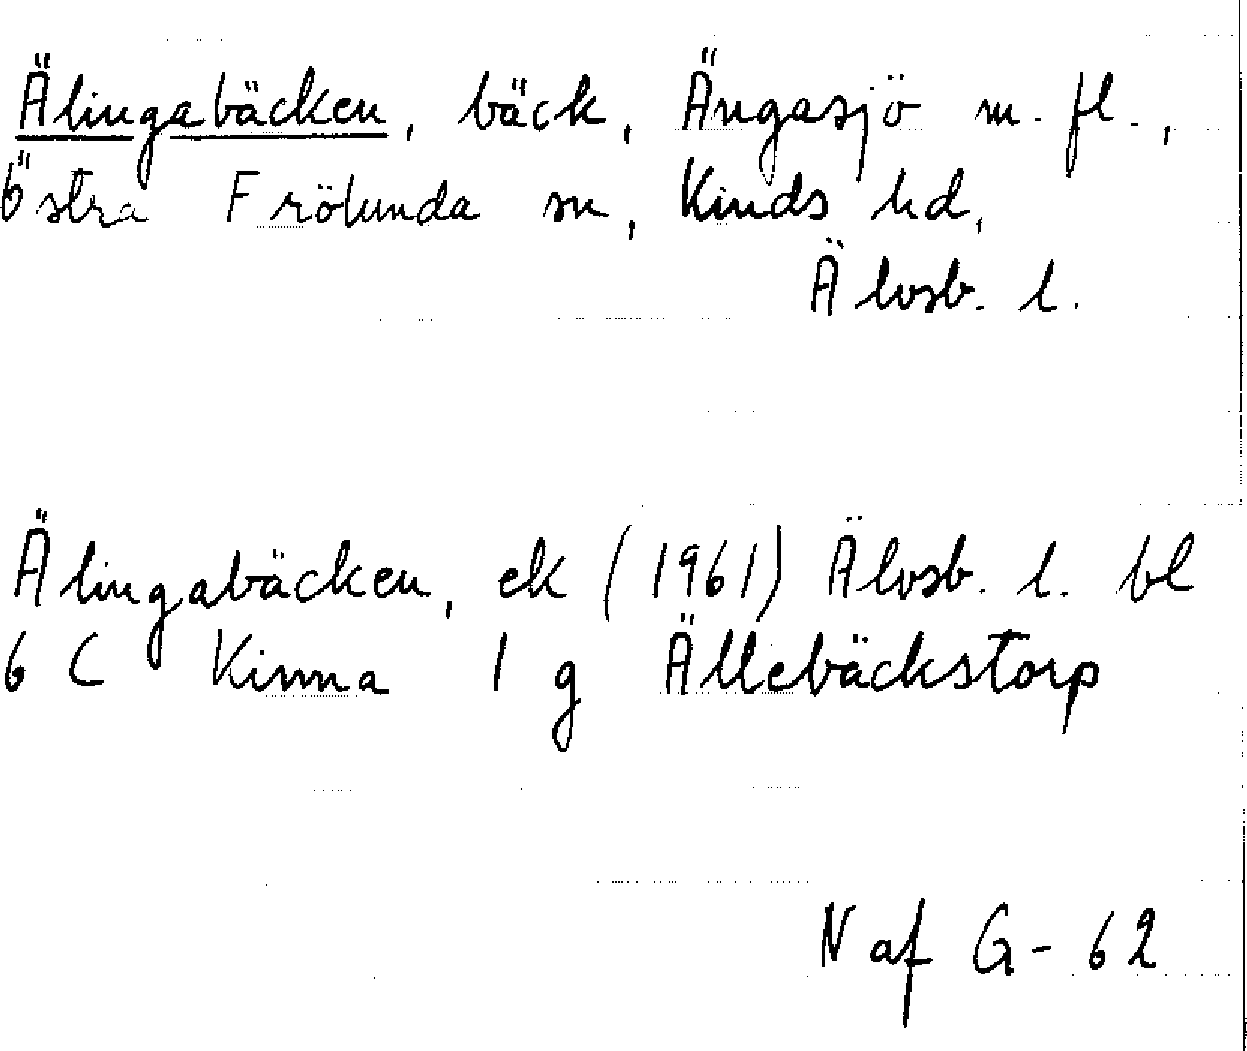 Älingabäcken, bäck, Ängasjö m. fl.,
Östra Frölunda sn, Kinds hd,
Älvsb. l.
Älingabäcken, ek (1961) Älvsb. l. bl
6 C Kinna 1 g Ällebäckstorp
N af G-62